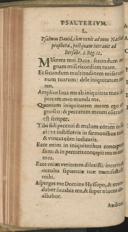 PSALTERIVM.
L.
Psalmus David, cum venit ad eum Nathan
propheta, quando intravit ad
Bersabe. 2. Reg. 12.
MIserere mei Deus, secundum ma-
gnam misericordiam tuam.
Et secundum multitudinem miseratio-
num tuarum: dele iniquitatem me-
am.
Amplius lava me ab iniquitate mea: &
à peccato meo munda me.
Quoniam iniquitatem meam ego co-
gnosco: & peccatum meum contra me
est semper.
Tibi soli peccavi & malum coram te
feci: ut iustificeris in sermonibus tuis
& vincas cùm iudicaris.
Ecce enim in iniquitatibus conceptus
sum: & in peccatis concepit me mater
mea.
Ecce enim veritatem dilexisti: incerta &
occulta sapientiæ tuæ manifestasti
mihi.
Asperges me Domine hyssopo, & mun-
dabor: lavabis me, & super nivem de-
albabor.